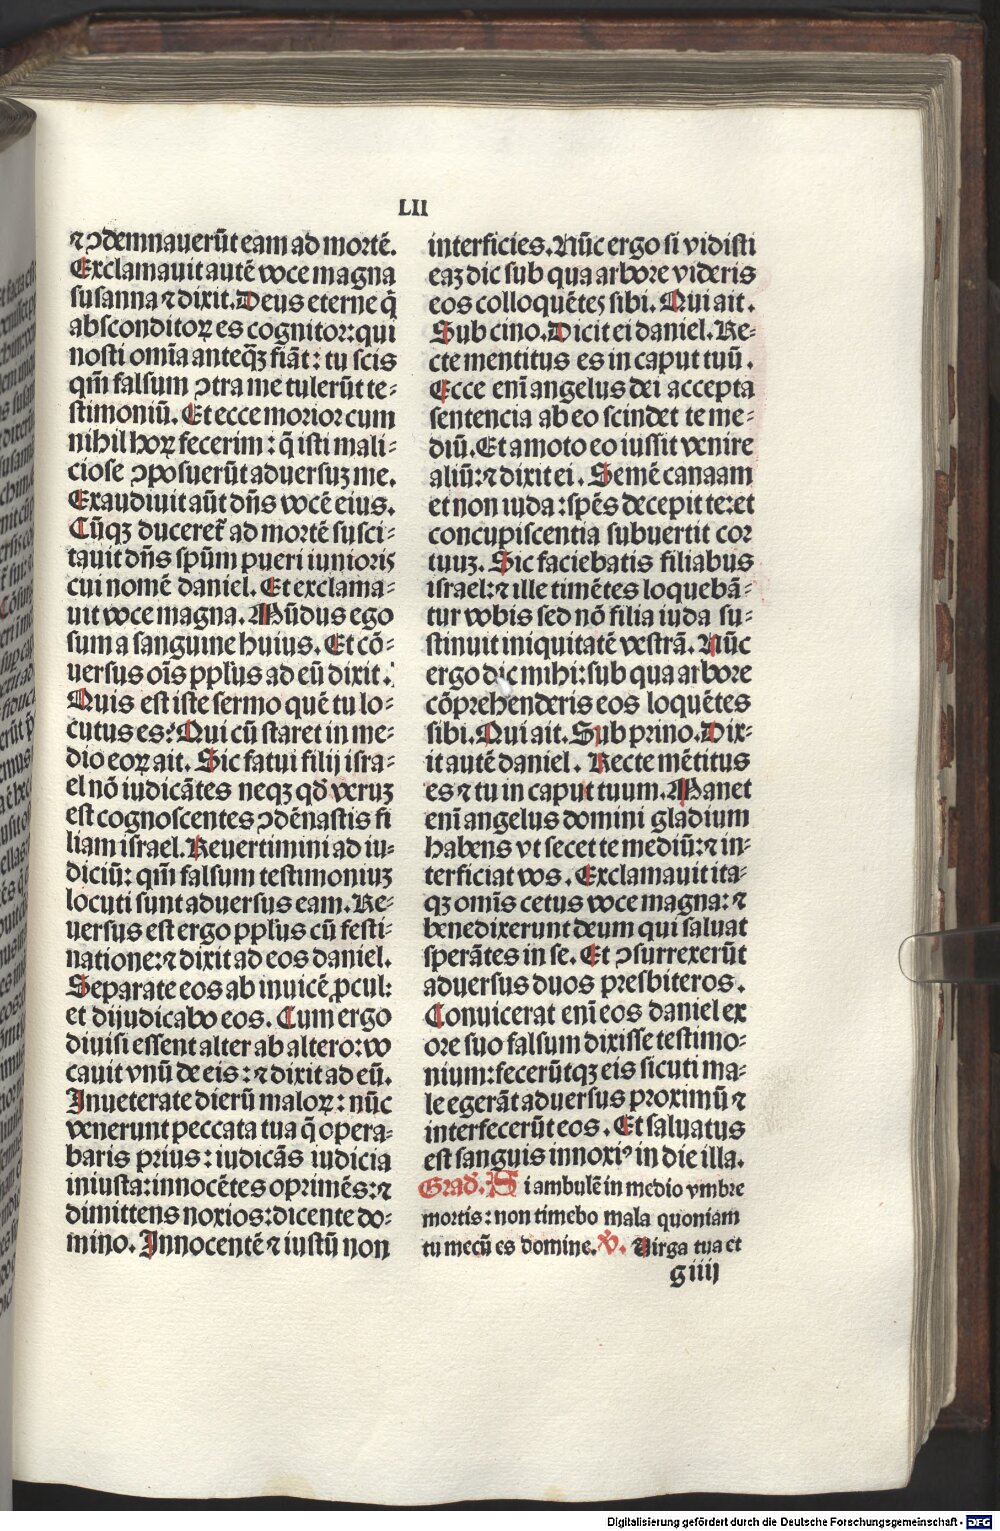 LII
⁊ ↄdemnauerūt eam ad mortē.
Exclamauit autē voce magna
susanna ⁊ dixit. Deus eterne q̄
absconditoꝝ es cognitor: qui
nosti om̄ia anteq̄ꝫ fiāt: tu scis
qm̄ falsum ↄtra me tulerūt te-
stimoniū. Et ecce morior cum
nihil hoꝝ fecerim: q̄ isti mali-
ciose ↄposuerūt aduersuꝫ me.
Exaudiuit aūt dn̄s vocē eius.
Cūqꝫ duceret̄ ad mortē susci-
tauit dn̄s spūm pueri iunioris
cui nomē daniel. Et exclama-
uit voce magna. Mūdus ego
sum a sanguine huius. Et cō-
uersus oīs pplūs ad eū dixit.
Quis est iste sermo quē tu lo-
cutus es? Qui cū staret in me-
dio eoꝝ ait. Sic fatui filij isra-
el nō iudicātes neqꝫ qd̄ veruꝫ
est cognoscentes ↄdēnastis fi
liam israel. Reuertimini ad iu-
diciū: qm̄ falsum testimoniuꝫ
locuti sunt aduersus eam. Re-
uersus est ergo pplūs cū festi-
natione: ⁊ dixit ad eos daniel.
Separate eos ab inuicē ꝓcul:
et dijudicabo eos. Cum ergo
diuisi essent alter ab altero: vo
cauit vnū de eis: ⁊ dixit ad eū.
Inueterate dierū maloꝝ: nūc
venerunt peccata tua q̄ opera-
baris prius: iudicās iudicia
iniusta: innocētes oprimēs: ⁊
dimittens noxios: dicente do-
mino. Innocentē ⁊ iustū non
interficies. Nūc ergo si vidisti
eaꝫ dic sub qua arbore videris
eos colloquētes sibi. Qui ait.
Sub cino. Dicit ei daniel. Re-
cte mentitus es in caput tuū.
Ecce enī angelus dei accepta
sentencia ab eo scindet te me-
diū. Et amoto eo iussit venire
aliū: ⁊ dixit ei. Semē canaam
et non iuda: spēs decepit te: et
concupiscentia subuertit cor
tuuꝫ. Sic faciebatis filiabus
israel: ⁊ ille timētes loquebā-
tur vobis sed nō filia iuda su-
stinuit iniquitatē vestrā. Nūc
ergo dic mihi: sub qua arbore
cōprehenderis eos loquētes
sibi. Qui ait. Sub prino. Dix-
it autē daniel. Recte mētitus
es ⁊ tu in caput tuum. Manet
enī angelus domini gladium
habens vt secet te mediū: ⁊ in-
terficiat vos. Exclamauit ita-
qꝫ omīs cetus voce magna: ⁊
benedixerunt deum qui saluat
sperātes in se. Et ↄsurrexerūt
aduersus duos presbiteros.
Conuicerat enī eos daniel ex
ore suo falsum dixisse testimo-
nium: fecerūtqꝫ eis sicuti ma-
le egerāt aduersus proximū ⁊
interfecerūt eos. Et saluatus
est sanguis innoxiꝰ in die illa.
Grad̄. Si ambulē in medio vmbre
mortis: non timebo mala quoniam
tu mecū es domine. V̄. Uirga tua et
giiij
Digitalisierung gefördert durch die Deutsche Forschungsgemeinschaft - DFG